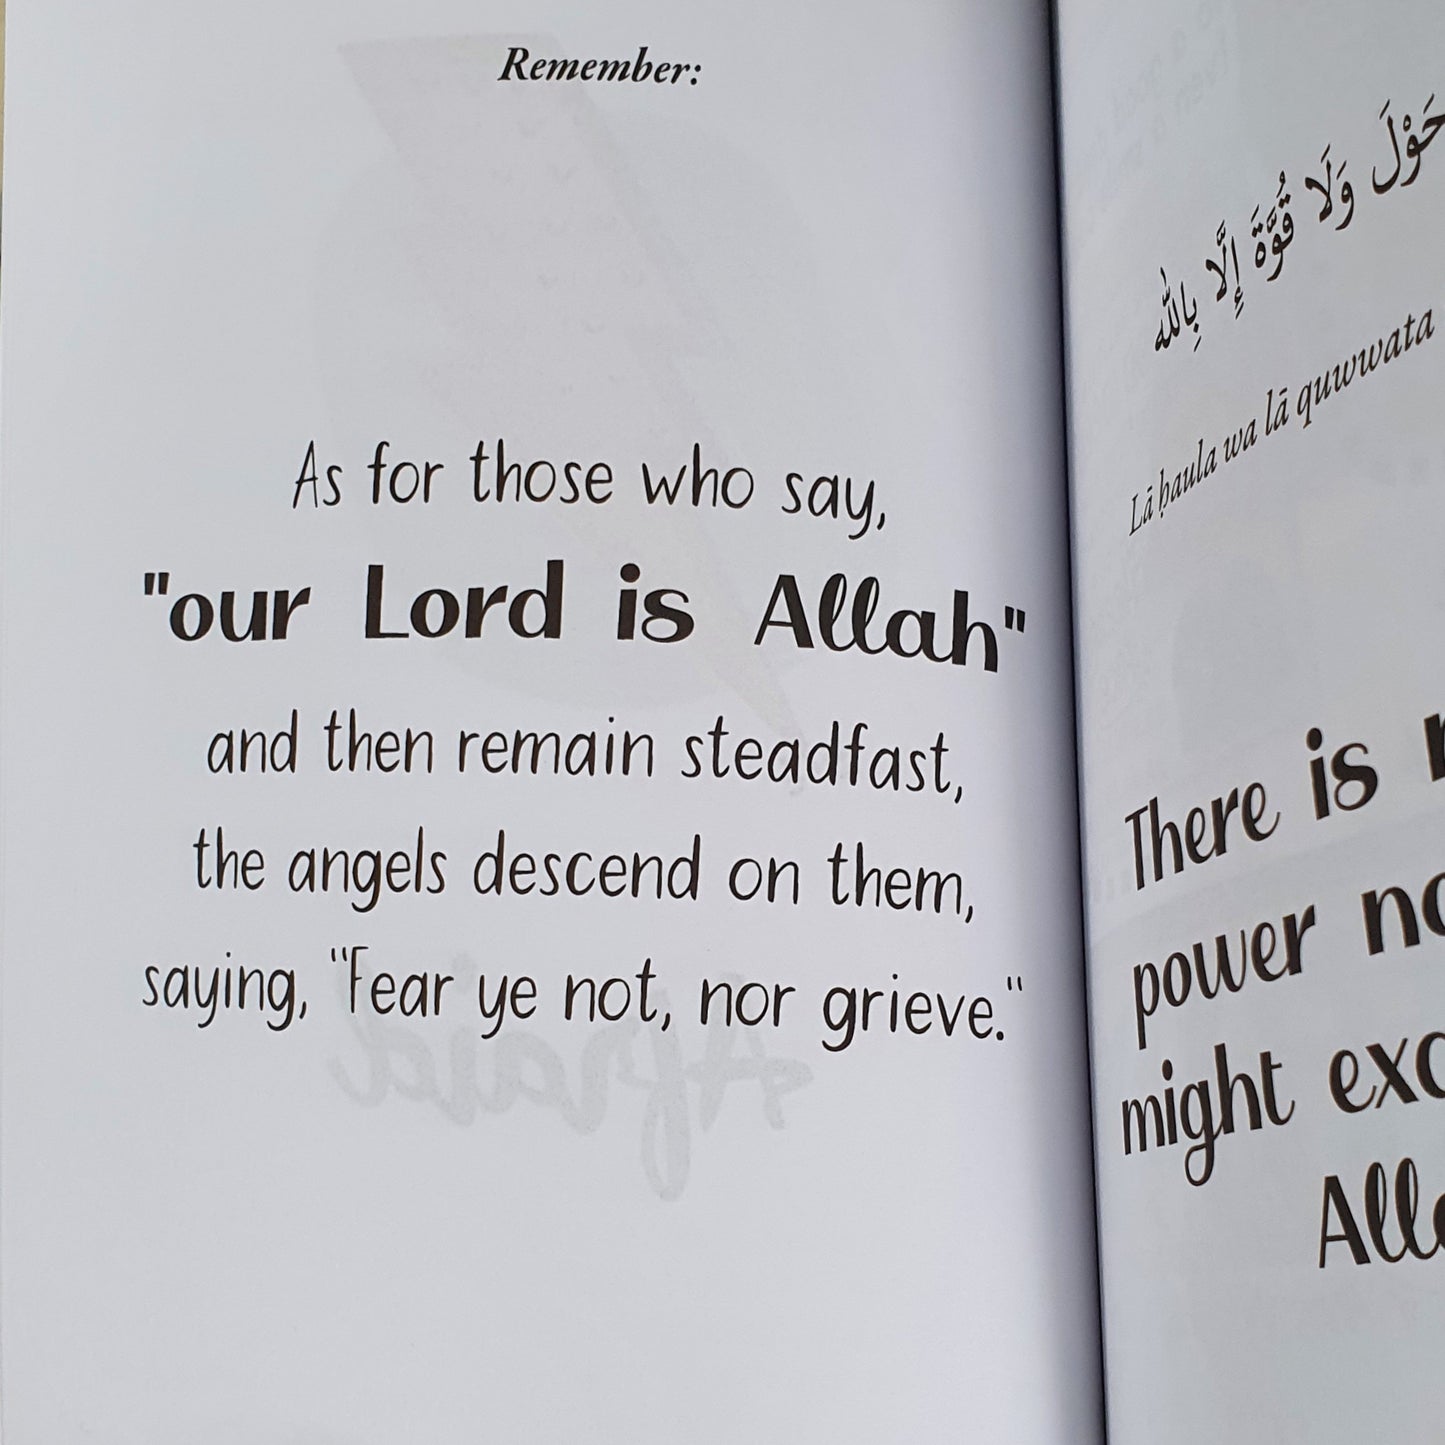 Remember:
As for those who say,
"our Lord is Allah"
and then remain steadfast,
the angels descend on them,
saying, "Fear ye not, nor grieve."
حَوْلَ وَلَا قُوَّةَ إِلَّا بِاللّٰه
Lā ḥaula wa lā quwwata
There is
power
might